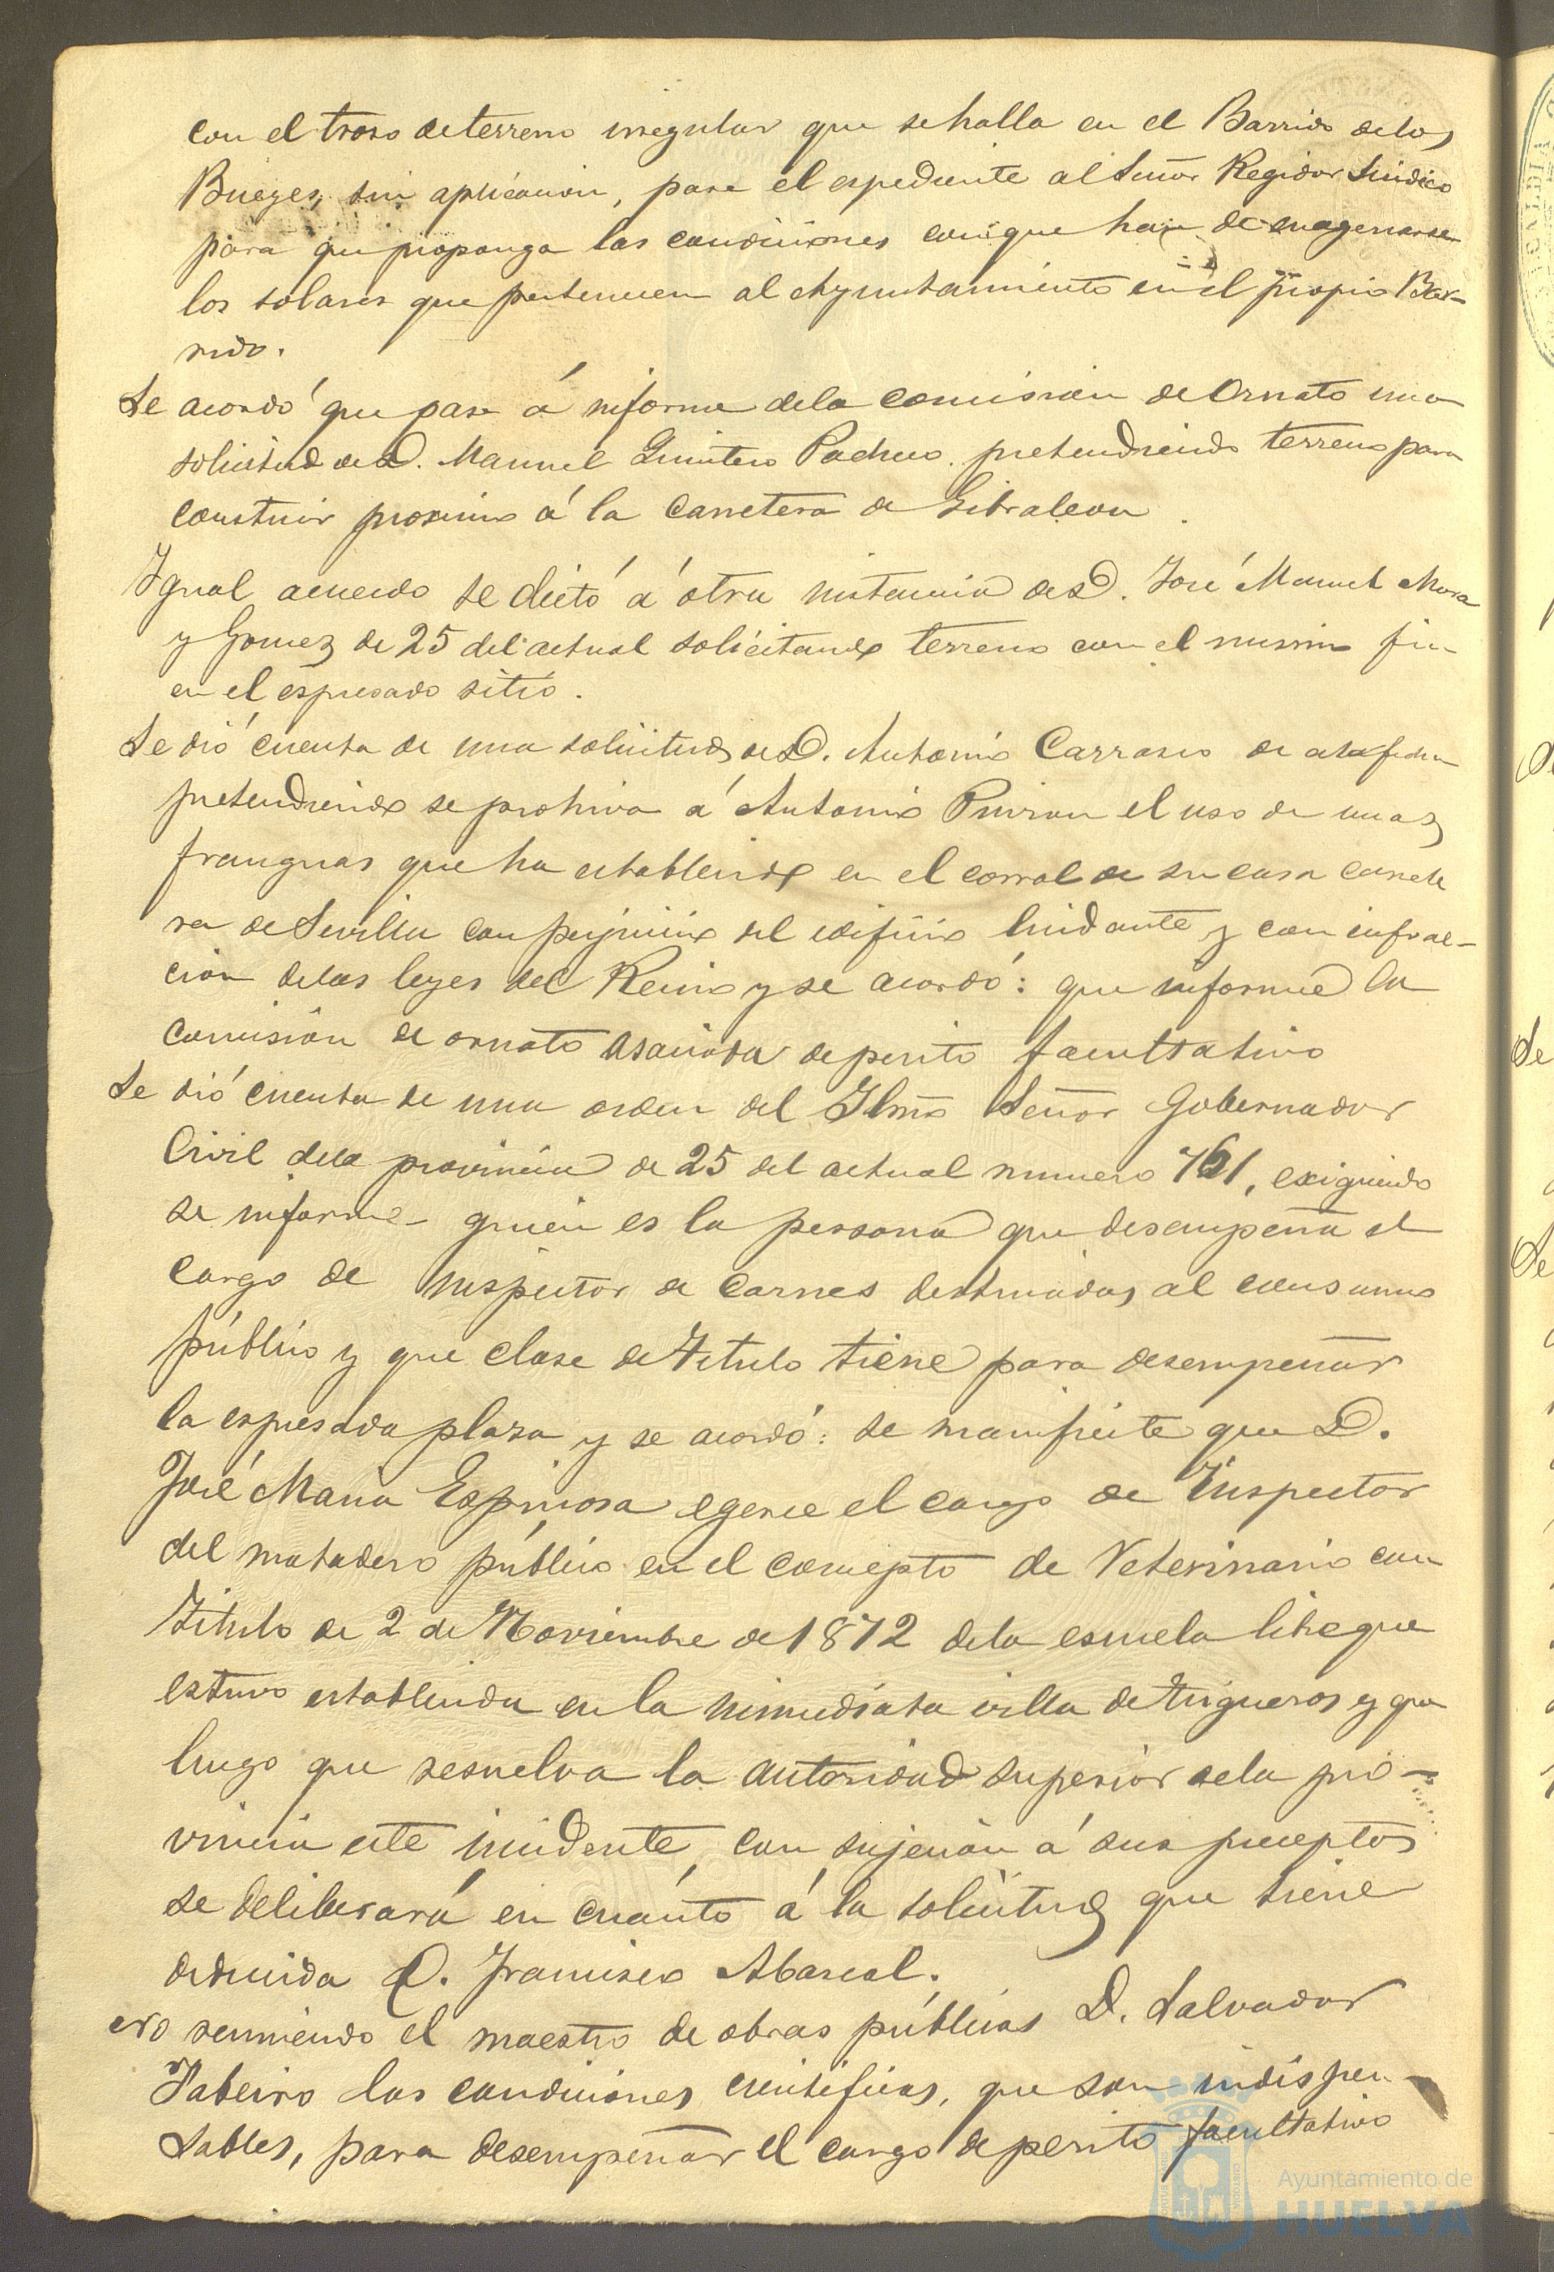 con el troso de terreno irregular que se halla en el Barrido de los
Bueyes, sin aplicacion, pase el espediente al Señor Regidor Sindico
para que proponga las condiciones con que han de enagenarse
los solares que pertenecen al Ayuntamiento en el propio Bar-
rido.
Se acordó que pase á informe de la comision de Ornato una
solicitud de D. Manuel Quintero Pacheco pretendiendo terreno para
construir procsimo á la carretera de Gibraleon
Igual acuerdo se dictó á otra instancia de D. José Manuel Mora
y Gomez de 25 del actual solicitando terreno con el mismo fin
en el espresado sitio.
Se dió cuenta de una solicitud de D. Antonio Carrasco de esta fecha
pretendiendo se prohiva á Antonio el uso de unas
franguas que ha establecido en el corral de su casa carrete
ra de Sevilla con perjuicio del edificio lindante y con infrac-
cion de las leyes del Reino y se acordó: que informe la
comision de ornato asociada de perito facultativo
Se dió cuenta de una orden del Ilmo Señor Gobernador
Civil de la provincia de 25 del actual numero 761, exigiendo
se informe quien es la persona que desempeña el
cargo de inspector de carnes destinadas al consumo
público y que clase de titulo tiene para desempeñar
la espresada plaza y se acordó: se manifieste que D.
José Maria Espinosa egerce el cargo de Inspector
del matadero público en el concepto de Veterinario con
titulo de 2 de Noviembre de 1872 de la escuela libre que
estuvo establecida en la inmediata villa de Trigueros y que
luego que resuelva la autoridad superior de la pro-
vincia este incidente, con sujecion á sus preceptos
se deliberará en cuánto á la solicitud que tiene
deducida D. Francisco Abascal.
ero reuniendo el maestro de obras públicas D. Salvador
Tabeiro las condiciones cientificas, que son indispen-
sables, para desempeñar el cargo de perito facultativo
Ayuntamiento de
HUELVA